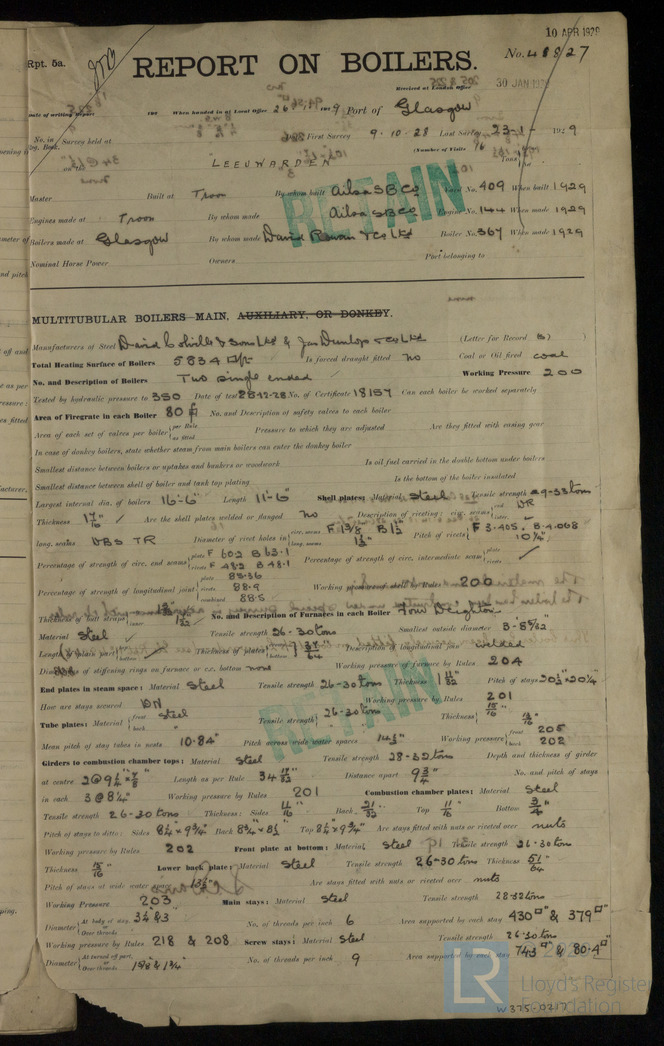 10 APR 1929
Rpt. 5a.
REPORT ON BOILERS.
No. 48827
Received at London Office 30 JAN 19
Date of writing Report 192 When handed in at Local Office 26 1929 Port of Glasgow
No. in Reg. Book. Survey held at First Survey 9-10-28 Last Survey 23-1- 1929
on the (Number of Visits 16
LEEUWARDEN Tons
RETAIN
Master Built at Troon By whom built Ailsa S B Co Yard No. 409 When built 1929
Engines made at Troon By whom made Ailsa S B Co Engine No. 144 When made 1929
Boilers made at Glasgow By whom made David Rowan & Co Ltd Boiler No. 367 When made 1929
Nominal Horse Power Owners Port belonging to
MULTITUBULAR BOILERS MAIN, AUXILIARY, OR DONKEY.
Manufacturers of Steel David Colville & Sons Ltd & Jas Dunlop & Co Ltd (Letter for Record S)
Total Heating Surface of Boilers 5834 Is forced draught fitted no Coal or Oil fired coal
No. and Description of Boilers Two single ended Working Pressure 200
Tested by hydraulic pressure to 350 Date of test 28-12-28 No. of Certificate 18157 Can each boiler be worked separately
Area of Firegrate in each Boiler 80 No. and Description of safety valves to each boiler
Area of each set of valves per boiler per Rule as fitted Pressure to which they are adjusted Are they fitted with easing gear
In case of donkey boilers, state whether steam from main boilers can enter the donkey boiler
Smallest distance between boilers or uptakes and bunkers or woodwork Is oil fuel carried in the double bottom under boilers
Smallest distance between shell of boiler and tank top plating Is the bottom of the boiler insulated
Largest internal dia. of boilers 16'-6" Length 11'-6" Shell plates: Material Steel Tensile strength 29-33 tons
Thickness 1 7/16 Are the shell plates welded or flanged no Description of riveting: circ. seams end DR
long. seams DBS TR Diameter of rivet holes in circ. seams F 1 3/8 B 1 1/2 long. seams 1 1/2" Pitch of rivets F 3.405. B 4.068 10 1/4"
Percentage of strength of circ. end seams plate F 60.2 B 63.1 rivets F 48.2 B 48.1 Percentage of strength of circ. intermediate seam plate rivets
Percentage of strength of longitudinal joint plate 85.36 rivets 88.9 combined 88.5 Working pressure of shell by Rules 200
Thickness of butt straps No. and Description of Furnaces in each Boiler Four Deighton
Material Steel Tensile strength 26-30 tons Smallest outside diameter 3-8 5/32"
Length of plain part top bottom Thickness of plates bottom 37/64" Description of longitudinal joint welded
Dimensions of stiffening rings on furnace or c.c. bottom none Working pressure of furnace by Rules 204
End plates in steam space: Material Steel Tensile strength 26-30 tons Thickness 1 11/32" Pitch of stays 20 1/2" x 20 1/4"
How are stays secured DN Working pressure by Rules 201
RETAIN
Tube plates: Material front back Steel Tensile strength 26-30 tons Thickness 15/16"
Mean pitch of stay tubes in nests 10.84" Pitch across wide water spaces 14 1/2" Working pressure front 205 back 202
Girders to combustion chamber tops: Material Steel Tensile strength 28-32 tons Depth and thickness of girder
at centre 2@9 1/4" x 7/8" Length as per Rule 34 Distance apart 9 3/4" No. and pitch of stays
in each 3@8 1/4" Working pressure by Rules 201 Combustion chamber plates: Material Steel
Tensile strength 26-30 tons Thickness: Sides 11/16" Back 21/32" Top 11/16" Bottom 3/4"
Pitch of stays to ditto: Sides 8 1/4" x 9 3/4" Back 8 3/4" x 8 1/2" Top 8 1/4" x 9 3/4" Are stays fitted with nuts or riveted over nuts
Working pressure by Rules 202 Front plate at bottom: Material Steel Tensile strength 26-30 tons
Thickness 15/16" Lower back plate: Material Steel Tensile strength 26-30 tons Thickness 51/64"
Pitch of stays at wide water space 13 1/2" Are stays fitted with nuts or riveted over nuts
Working Pressure 203 Main stays: Material Steel Tensile strength 28-32 tons
Diameter At body of stay, or Over threads 3 1/4 & 3 No. of threads per inch 6 Area supported by each stay 430 □" & 379 □"
Working pressure by Rules 218 & 208 Screw stays: Material Steel Tensile strength 26-30 tons
Diameter At turned off part, or Over threads 1 7/8 & 1 3/4" No. of threads per inch 9 Area supported by each stay 74.3 □" & 80.4 □"
LR
Lloyd's Register
Foundation
W375-0217